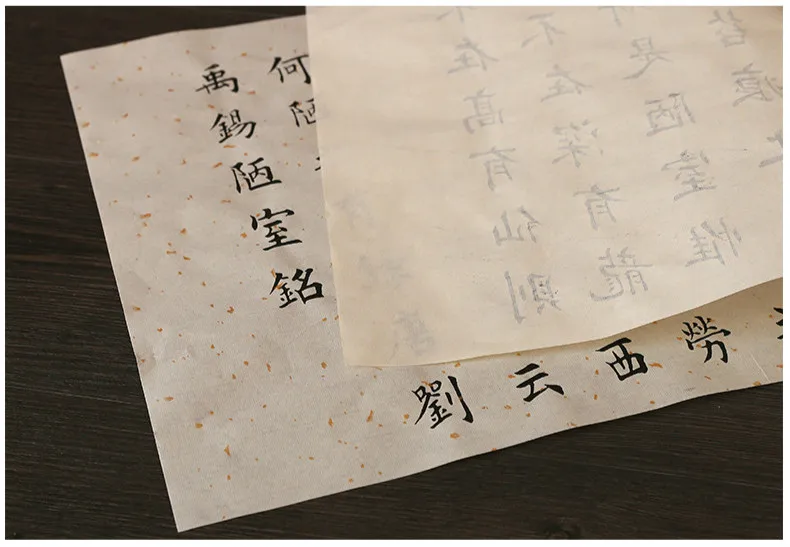 不在高有仙則
不在深有龍
是陋室惟
苔痕
勞
西
云
何陋
劉
禹錫陋室銘